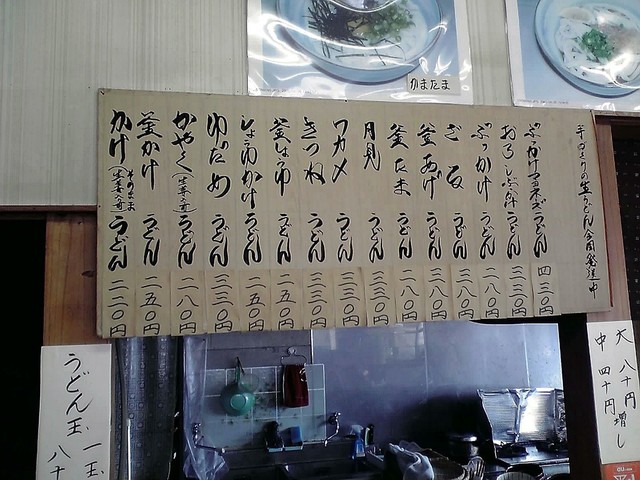 かまたま
手づくりの生うどん全国発送中
ぶっかけマヨネーズうどん 四三〇円
おろしぶっかけ うどん 三三〇円
ぶっかけ うどん 二八〇円
ざる うどん
釜あげ うどん
釜たま うどん 二八〇円
月見 うどん 三三〇円
ワカメ うどん 三三〇円
きつね うどん 三三〇円
釜しょうゆ うどん 二五〇円
しょうゆかけ うどん 二五〇円
ゆだめ うどん
かやく うどん 二八〇円
釜かけ うどん 二五〇円
かけ うどん 二二〇円
大 八十円増し
中 四十円
うどん玉 一玉
八十